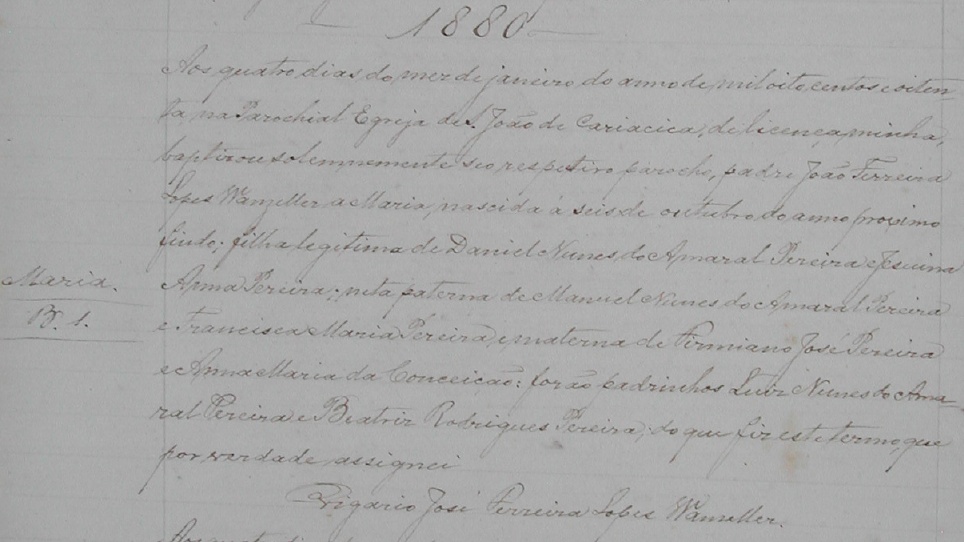 1880
Aos quatro dias do mez de janeiro do anno de mil oito centos e oiten-
ta, na Parochial Egreja de S. João de Cariacica, de licença minha,
baptizou solemnemente seo respetivo parocho, padre João Ferreira
Lopes Wanzeller a Maria, nascida á seis de outubro do anno proximo
findo; filha legitima de Daniel Nunes do Amaral Pereira e Jesuina
Maria.
Anna Pereira; neta paterna de Manuel Nunes do Amaral Pereira
B. 1.
e Francisca Maria Pereira, e materna de Firmiano José Pereira
e Anna Maria da Conceição: forão padrinhos Luiz Nunes do Ama-
ral Pereira e Beatriz Rodrigues Pereira; do que fiz este termo, que
por verdade assignei
Vigario José Ferreira Lopes Wanzeller.